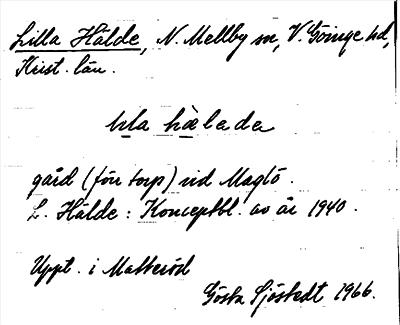 Lilla Hälde, N. Mellby sn, V. Göinge hd,
Krist. län.
lıla hælada
gård (förr torp) vid Maglö.
L. Hälde: Konceptbl. av år 1940.
Uppt. i Matteröd
Gösta Sjöstedt 1966.